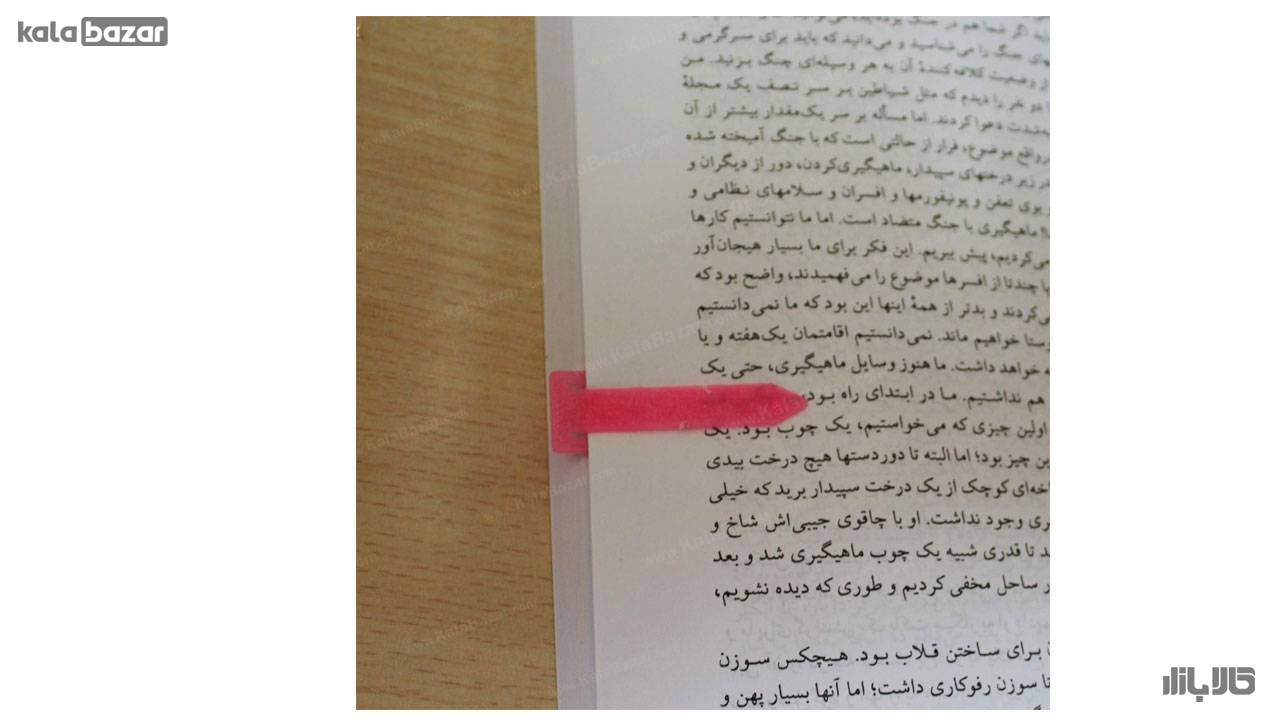 kala bazar
های جنگ را می‌شناسید و می‌دانید که باید برای سرگرمی و
از وضعیت کلافه‌کنندهٔ آن به هر وسیله‌ای چنگ بزنید. من
دو نفر را دیدم که مثل شیاطین بر سر نصف یک مجلهٔ
به‌شدت دعوا کردند. اما مسأله بر سر یک‌مقدار بیشتر از آن
درواقع موضوع، فرار از حالتی است که با جنگ آمیخته شده
در زیر درختهای سپیدار، ماهیگیری‌کردن، دور از دیگران و
بوی تعفن و یونیفورمها و افسران و سلامهای نظامی و
ماهیگیری با جنگ متضاد است. اما ما نتوانستیم کارها
می‌کردیم، پیش ببریم. این فکر برای ما بسیار هیجان‌آور
چندتا از افسرها موضوع را می‌فهمیدند، واضح بود که
می‌کردند و بدتر از همهٔ اینها این بود که ما نمی‌دانستیم
خواهیم ماند. نمی‌دانستیم اقامتمان یک‌هفته و یا
خواهد داشت. ما هنوز وسایل ماهیگیری، حتی یک
هم نداشتیم. ما در ابتدای راه بود،
اولین چیزی که می‌خواستیم، یک چوب بود. یک
چیز بود؛ اما البته تا دوردستها هیچ درخت بیدی
کوچک از یک درخت سپیدار برید که خیلی
وجود نداشت. او با چاقوی جیبی‌اش شاخ و
تا قدری شبیه یک چوب ماهیگیری شد و بعد
ساحل مخفی کردیم و طوری که دیده نشویم،
برای ساختن قلاب بود. هیچکس سوزن
سوزن رفوکاری داشت؛ اما آنها بسیار پهن و
کالا بازار